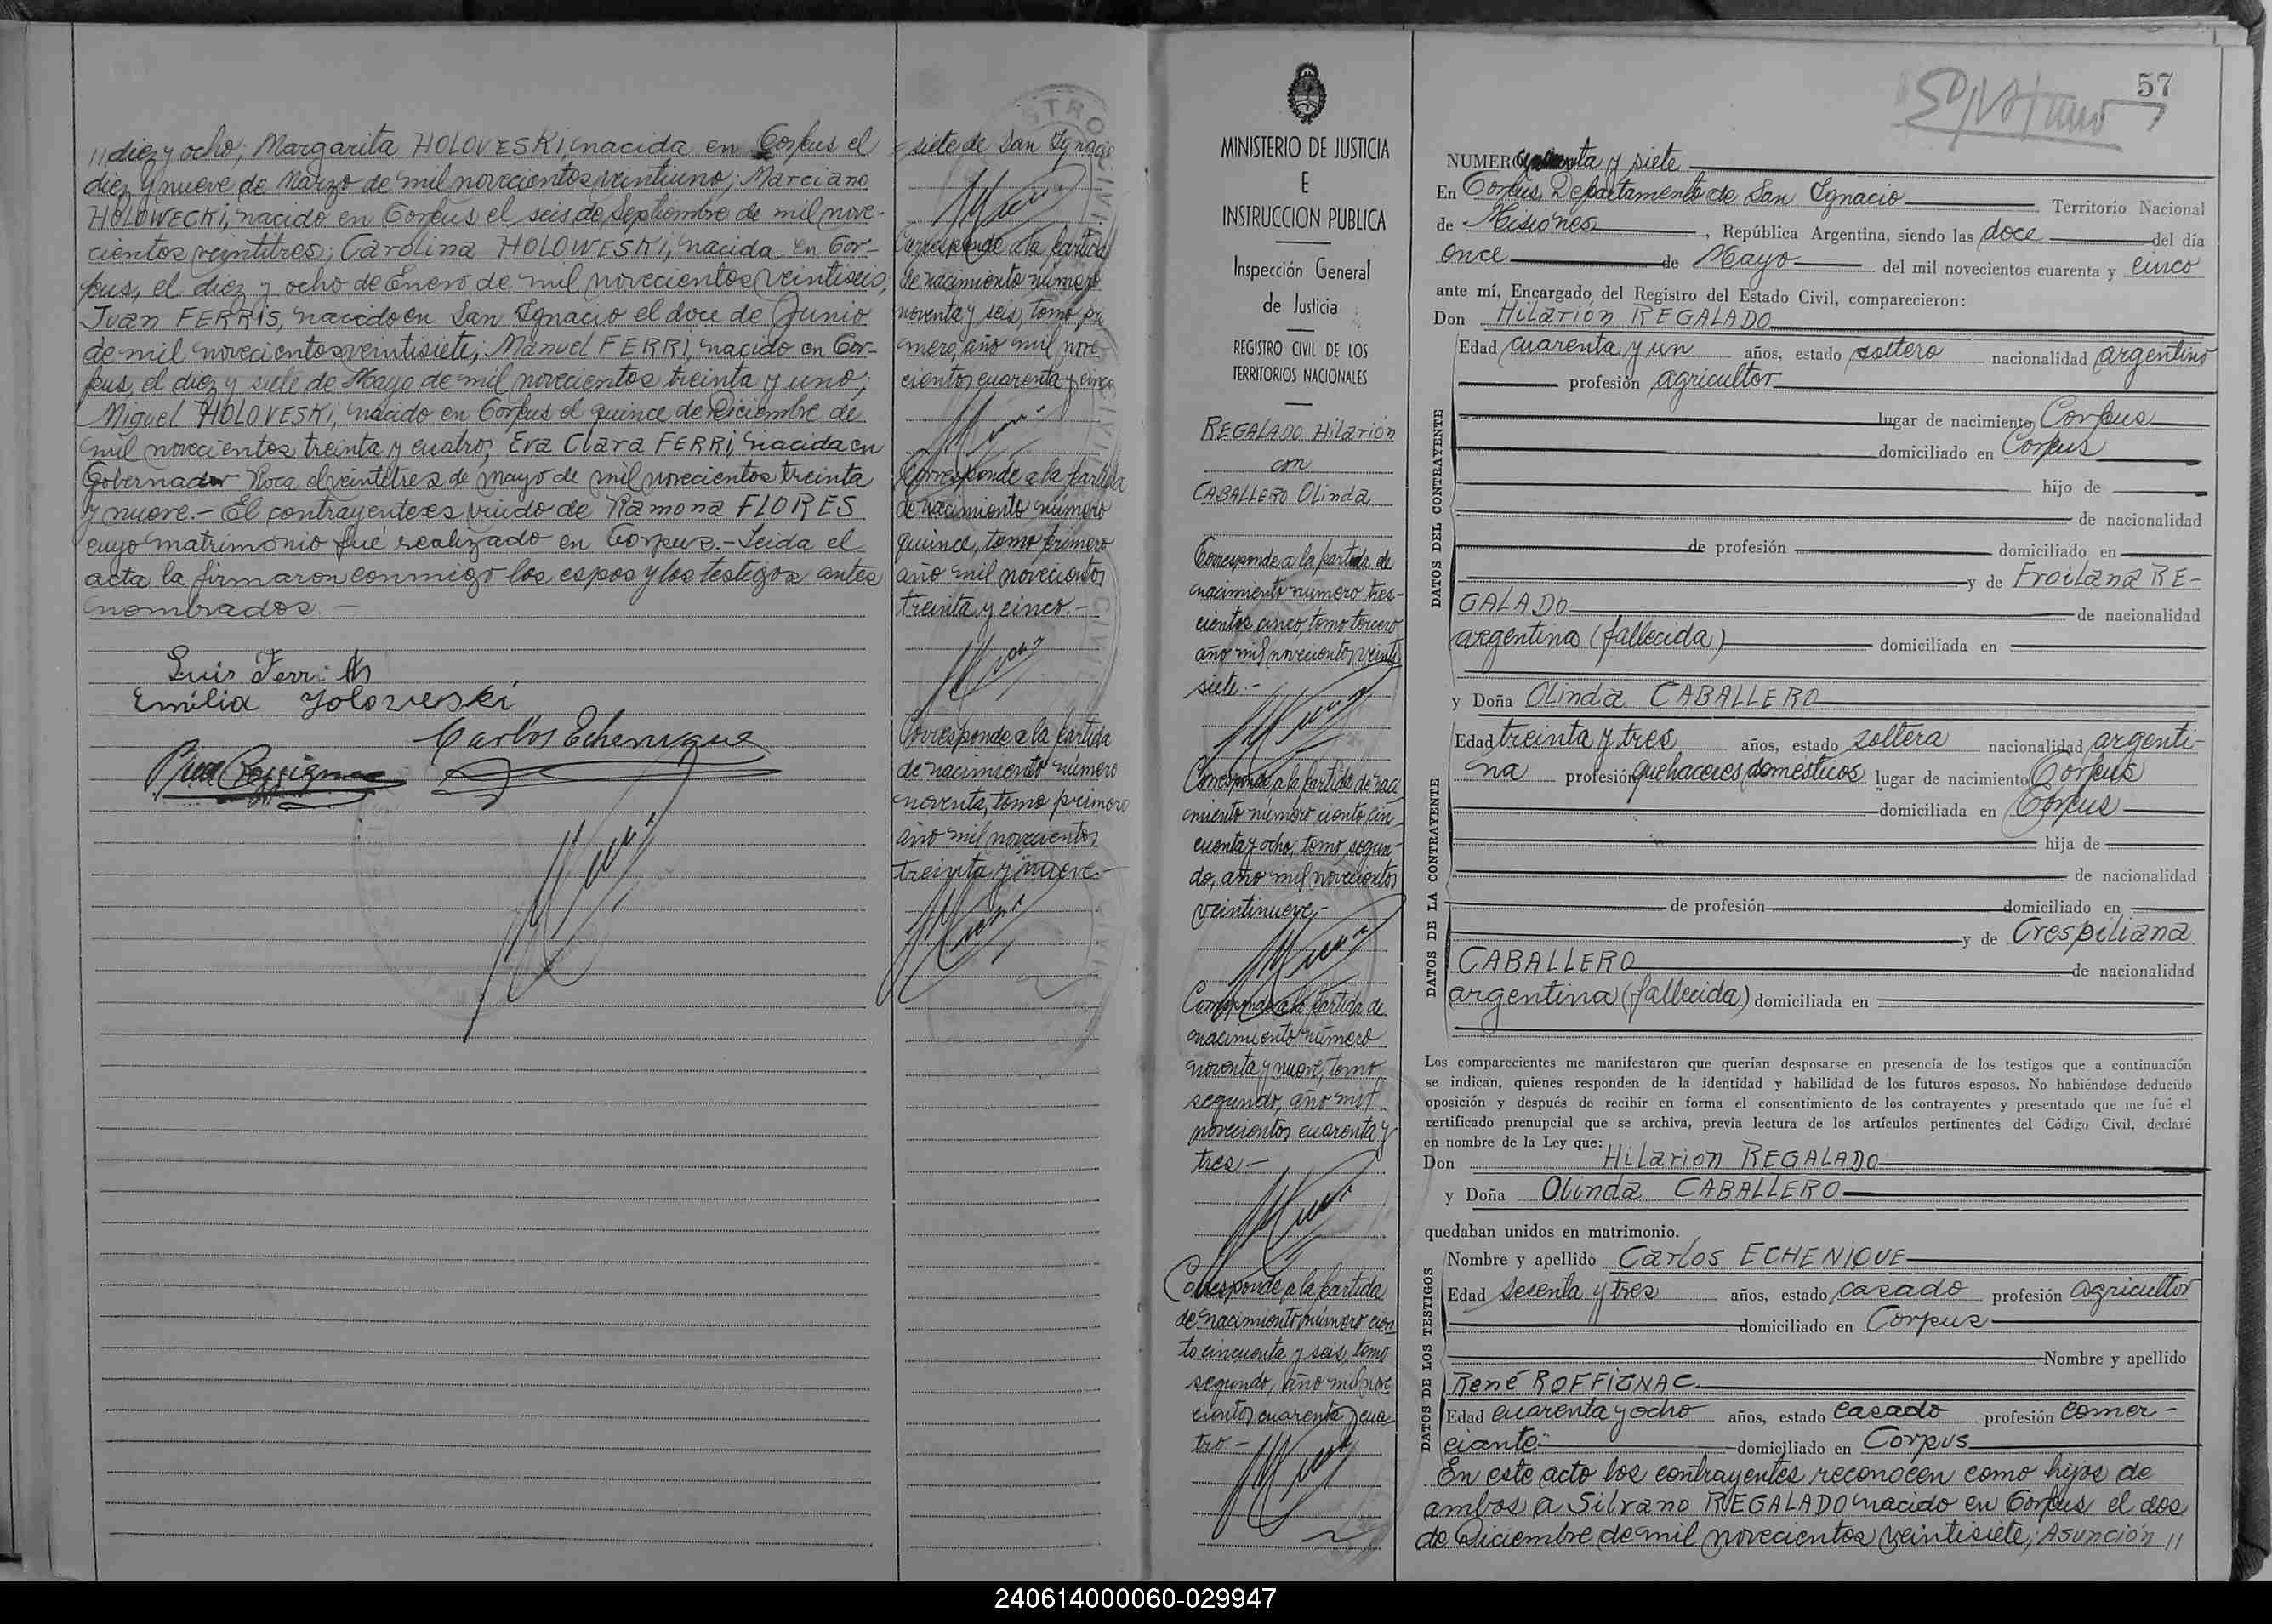 //diez y ocho; Margarita HOLOVESKI, nacida en Corpus el
diez y nueve de Marzo de mil novecientos veintiuno; Marciano
HOLOWECKI, nacido en Corpus el seis de Septiembre de mil nove-
cientos veintitres; Carolina HOLOWESKI, nacida en Cor-
pus, el diez y ocho de Enero de mil novecientos veintiseis,
Juan FERRIS, nacido en San Ignacio el doce de Junio
de mil novecientos veintisiete; Manuel FERRI, nacido en Cor-
pus, el diez y siete de Mayo de mil novecientos treinta y uno;
Miguel HOLOVESKI, nacido en Corpus el quince de Diciembre de
mil novecientos treinta y cuatro; Eva Clara FERRI, nacida en
Gobernador Roca el veintitres de mayo de mil novecientos treinta
y nueve.- El contrayente es viudo de Ramona FLORES
cuyo matrimonio fué realizado en Corpus.- Leida el
acta la firmaron conmigo los espos y los testigos antes
nombrados.-
Luis Ferri
Emilia Joloveski
Carlos Echenique
= siete de San Ignacio
Corresponde a la partida
de nacimiento número
noventa y seis, tomo pri
mero, año mil nove
cientos cuarenta y cinco
Corresponde a la partida
de nacimiento número
quince, tomo primero
año mil novecientos
treinta y cinco.-
Corresponde a la partida
de nacimiento número
noventa, tomo primero
año mil novecientos
treinta y nueve.-
MINISTERIO DE JUSTICIA
E
INSTRUCCION PUBLICA
Inspección General
de Justicia
REGISTRO CIVIL DE LOS
TERRITORIOS NACIONALES
REGALADO Hilarión
con
CABALLERO Olinda
Corresponde a la partida de
nacimiento número tres-
cientos cinco, tomo tercero
año mil novecientos veinte
siete.-
Corresponde a la partida de naci
miento número ciento cin
cuenta y ocho, tomo segun-
do, año mil novecientos
veintinueve.-
Corresponde a la partida de
nacimiento número
noventa y nueve, tomo
segundo, año mil
novecientos cuarenta y
tres.-
Corresponde a la partida
de nacimiento número cien
to cincuenta y seis, tomo
segundo, año mil nove
cientos cuarenta y cua
tro.-
57
NUMERO cuarenta y siete
En Corpus, Departamento de San Ignacio Territorio Nacional
de Misiones, República Argentina, siendo las doce del día
once de Mayo del mil novecientos cuarenta y cinco
ante mí, Encargado del Registro del Estado Civil, comparecieron:
Don Hilarión REGALADO
DATOS DEL CONTRAYENTE
Edad cuarenta y un años, estado soltero nacionalidad argentino
profesión agricultor
lugar de nacimiento Corpus
domiciliado en Corpus
hijo de
de nacionalidad
de profesión domiciliado en
y de Froilana RE-
GALADO de nacionalidad
argentina (fallecida) domiciliada en
y Doña Olinda CABALLERO
DATOS DE LA CONTRAYENTE
Edad treinta y tres años, estado soltera nacionalidad argenti-
na profesión quehaceres domesticos lugar de nacimiento Corpus
domiciliada en Corpus
hija de
de nacionalidad
de profesión domiciliado en
y de Crespiliana
CABALLERO de nacionalidad
argentina (fallecida) domiciliada en
Los comparecientes me manifestaron que querían desposarse en presencia de los testigos que a continuación
se indican, quienes responden de la identidad y habilidad de los futuros esposos. No habiéndose deducido
oposición y después de recibir en forma el consentimiento de los contrayentes y presentado que me fué el
certificado prenupcial que se archiva, previa lectura de los artículos pertinentes del Código Civil, declaré
en nombre de la Ley que:
Don Hilarion REGALADO
y Doña Olinda CABALLERO
quedaban unidos en matrimonio.
DATOS DE LOS TESTIGOS
Nombre y apellido Carlos ECHENIQUE
Edad sesenta y tres años, estado casado profesión agricultor
domiciliado en Corpus
Nombre y apellido
René ROFFIGNAC
Edad cuarenta y ocho años, estado casado profesión comer-
ciante domiciliado en Corpus
En este acto los contrayentes reconocen como hijos de
ambos a Silvano REGALADO nacido en Corpus el dos
de Diciembre de mil novecientos veintisiete; Asunción //
240614000060-029947